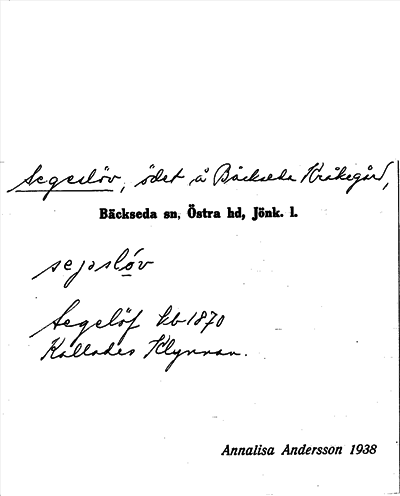 Segeslöv, ödet å Bäckseda Kråkegård,
Bäckseda sn, Östra hd, Jönk. l.
sejəslóv
Segelöf kb 1870
Kallades Klynnan.
Annalisa Andersson 1938